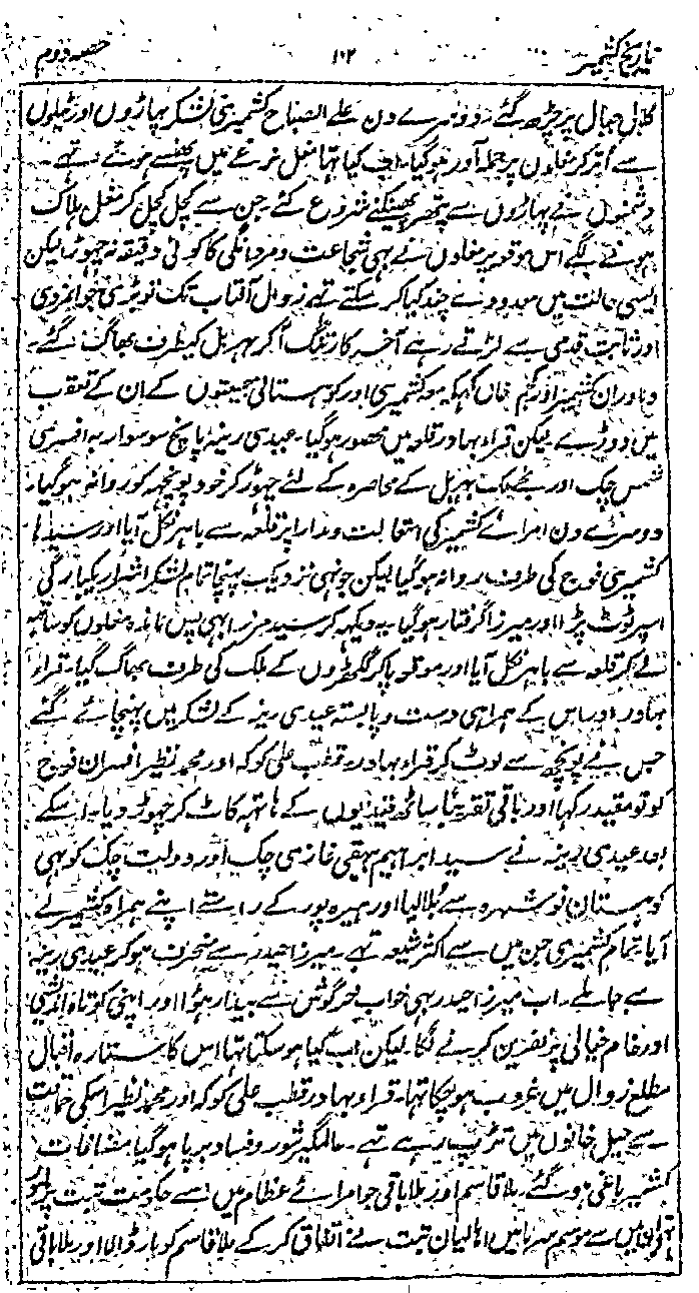 تاریخ کشمیر ۱۰۲ حصہ دوم
جبال پر چڑھ گئے۔ دوسرے دن علی الصباح کشمیری لشکر پہاڑوں اور ٹیلوں
سے اُتر کر مغلوں پر حملہ آور ہوگیا۔ اب کیا تھا مغل نرغے میں پھنسے ہوئے تھے۔
دشمنوں نے پہاڑوں سے پتھر پھینکنے شروع کئے۔ جن سے کچل کچل کر مغل ہلاک
ہونے لگے اس موقعہ پر مغلوں نے بھی شجاعت و مردانگی کا کوئی دقیقہ نہ چھوڑا لیکن
ایسی حالت میں معدودے چند کیا کر سکتے تھے زوال آفتاب تک تو بڑی جوانمردی
اور ثابت قدمی سے لڑتے رہے آخر کار تنگ آکر بہربل کیطرف بھاگ گئے۔
دلاوران کشمیر اور خاں کہکہ معہ کشمیری اور کوہستانی جمیعتوں کے ان کے تعقب
میں دوڑے لیکن قراء بہادر قلعہ میں محصور ہوگیا۔ عیدی رینہ پانچ سو سوار بہ افسری
شمس چک اور ملک بہربل کے محاصرہ کے لئے چھوڑ کر خود پونچھ کو روانہ ہوگیا۔
دوسرے دن امرائے کشمیر کی استمالت و مدارا پر قلعہ سے باہر نکل آیا اور سیدھا
کشمیری فوج کی طرف روانہ ہوگیا لیکن جونہی نزدیک پہنچا تمام لشکر اشرار یکبارگی
اسپر ٹوٹ پڑا اور میرزا گرفتار ہوگیا یہ دیکھ کر سید مرزا بھی پس ماندہ مغلوں کو ساتھ
لے کر قلعہ سے باہر نکل آیا اور موقعہ پاکر گکھڑوں کے ملک کی طرف بھاگ گیا۔ قراء
بہادر اور اس کے ہمراہی دست و پا بستہ عیدی رینہ کے لشکر میں پہنچائے گئے
جس نے پونچھ سے لوٹ کر قراء بہادر قطب علی کوکہ اور محمد نظیر افسران فوج
کو تو مقید رکہا اور باقی تقریباً ساٹھ قیدیوں کے ہاتھ کاٹ کر چھوڑ دیا۔ اسکے
بعد عیدی رینہ نے سید ابراہیم بیہقی غازی چک اور دولت چک کو بھی
کوہستان نوشہرہ سے بُلالیا اور ہیرہ پور کے راستے اپنے ہمراہ کشمیر لے
آیا تمام کشمیری جن میں سے اکثر شیعہ تھے۔ میرزا حیدر سے منحرف ہوکر عیدی رینہ
سے جا ملے۔ اب میرزا حیدر بھی خواب خرگوش سے بیدار ہؤا اور اپنی کوتاہ اندیشی
اور خام خیالی پر نفرین کرنے لگا۔ لیکن اب کیا ہو سکتا تھا اس کا ستارہ اقبال
مطلع زوال میں غروب ہوچکا تھا۔ قراء بہادر قطب علی کوکہ اور محمد نظیر اسکی حمایت
سے جیل خانوں میں تڑپ رہے تھے۔ عالمگیر شور و فساد برپا ہوگیا مضافات
کشمیر باغی ہو گئے۔ ملا قاسم اور ملا باقی جو امرائے عظام میں سے حکومت تبت پر
میں سے موسم سرما میں اہالیان تبت نے اتفاق کرکے ملا قاسم کو مار ڈالا اور ملا باقی